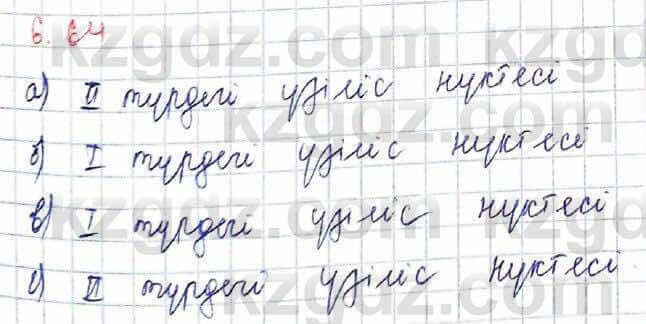 6.64
а) II түрдегі үзіліс нүктесі
б) I түрдегі үзіліс нүктесі
в) I түрдегі үзіліс нүктесі
с) II түрдегі үзіліс нүктесі
kzgdz.com kzgdz.com
kzgdz.com
kzgdz.com kzgdz.com